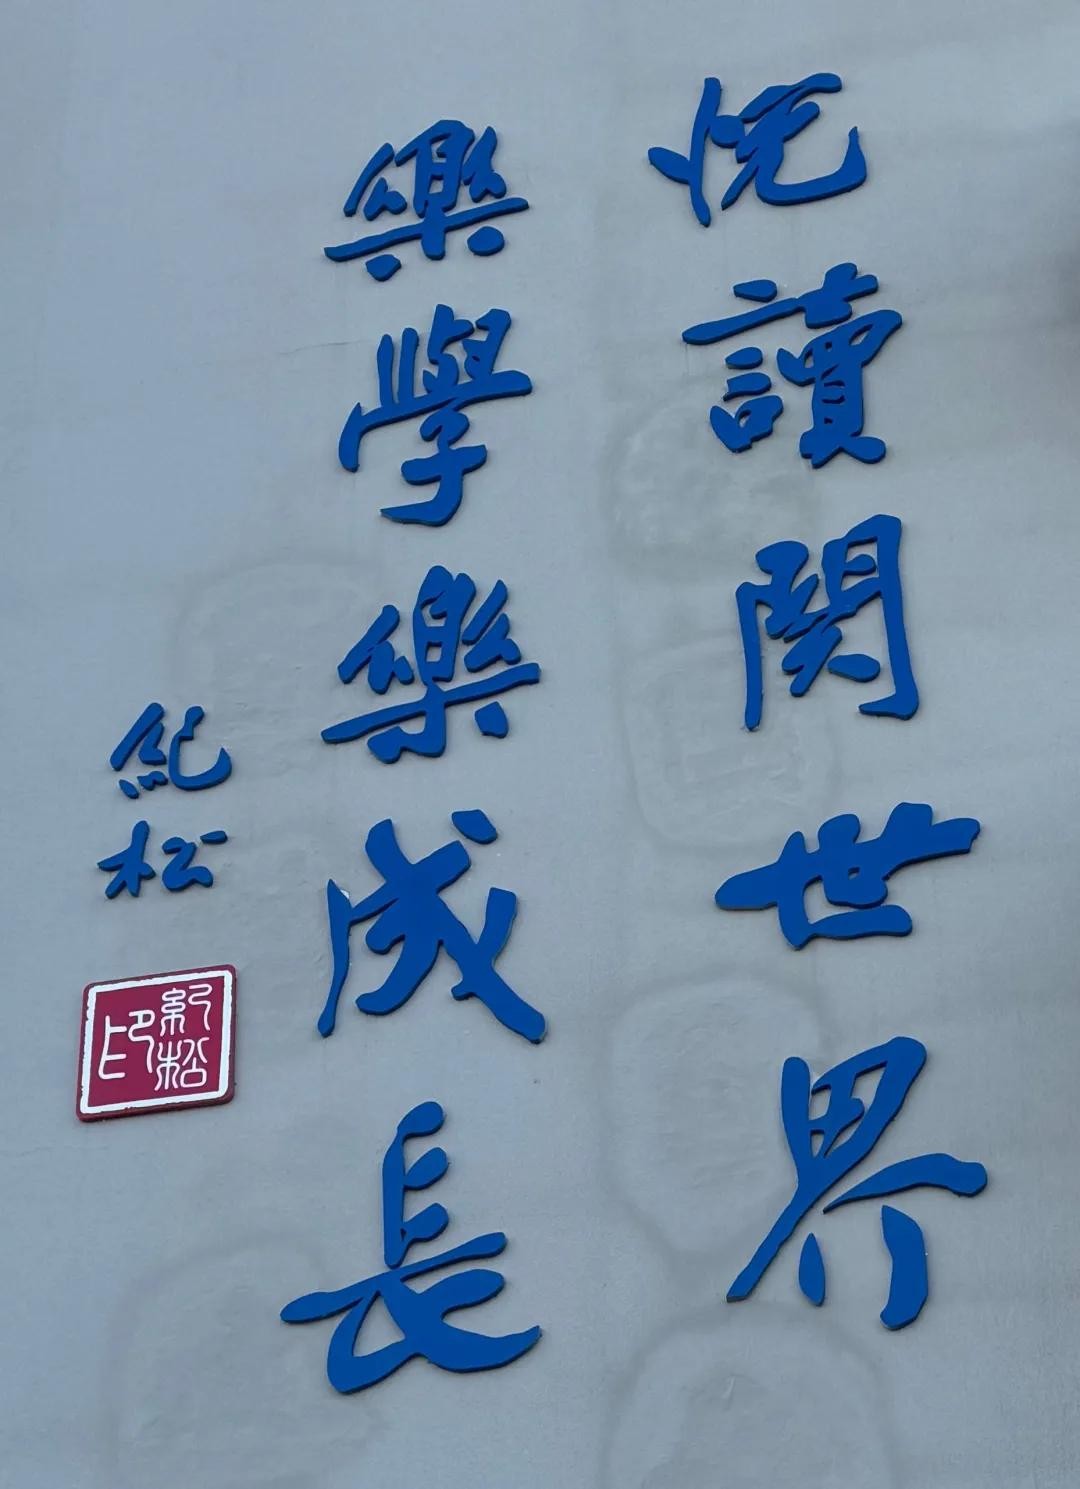 悦讀閱世界
樂學樂成長
紀松
紀松印